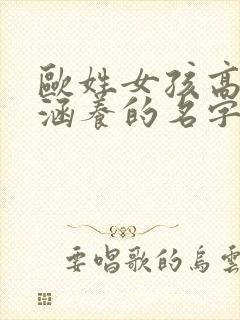 歐姓女孩高
涵養的名字
要唱歌的烏雲